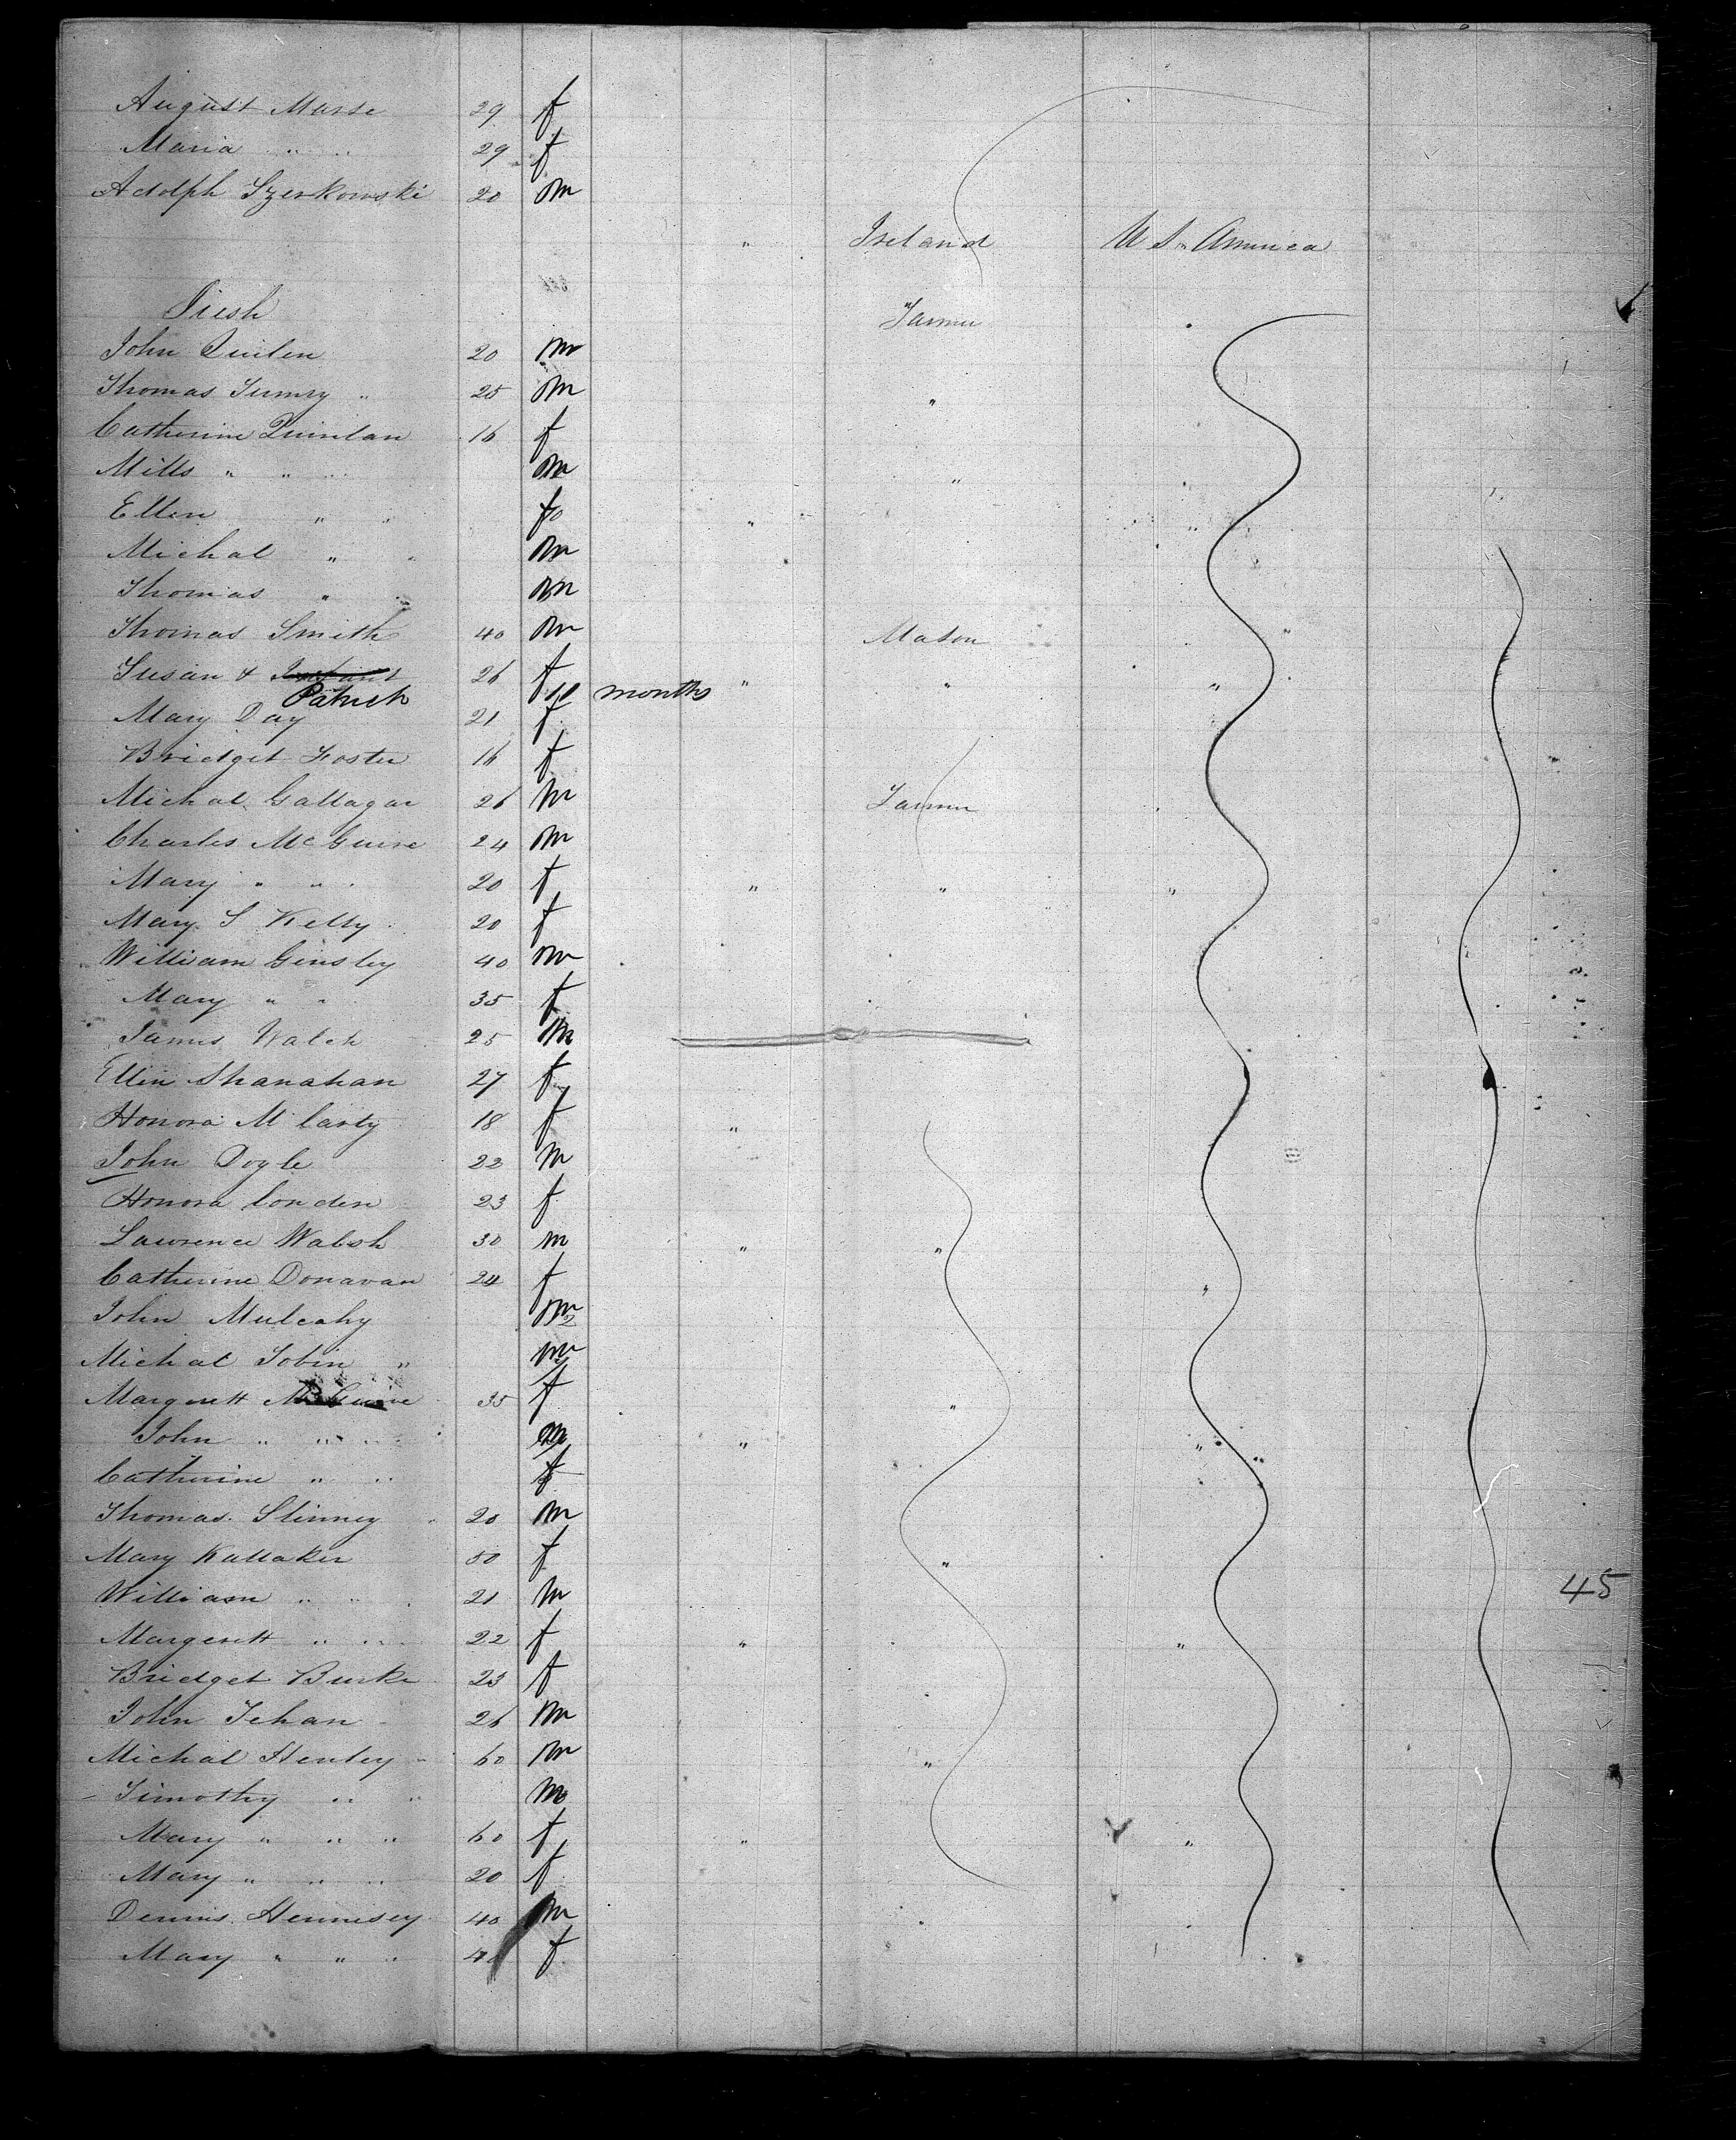 August Marse 29 f
Maria " " 29 f
Adolph Szerkowski 20 m
" Ireland U S America
Irish Farmer
John Quilen 20 m
Thomas 25 m "
Catherine Quinlan 16 f
Mills " " m "
Ellen " " f " "
Michal " m
Thomas " m
Thomas Smith 40 m Mason "
Susan & Infant 26 f " " "
Patrick 10 months
Mary Day 21 f
Bridget Foster 16 f
Michal Gallagar 26 m Farmer
Charles McGuire 24 m
Mary " " 20 f " " "
Mary S Kelly 20 f
William Ginsley 40 m
Mary " " 35 f
James Walch 25 m
Ellin Shanahan 27 f
Honora M Carty 18 f "
John Doyle 22 m
Honora Conden 23 f
Lawrence Walsh 30 m " "
Catherine Donavan 24 f "
John Mulcahy m
Michal Tobin " m
Margrett McGuire 35 f "
John " " m " "
Catherine " " f
Thomas Slinney 20 m
Mary Kallaker 50 f "
William " " 21 m
45
Margerett " " 22 f " "
Bridget Burke 23 f
John Tehan 26 m
Michal Henley 60 m "
Timothy " " m
Mary " " " 60 f " "
Mary " " " 20 f
Dennis Hennisey 40 m "
Mary " " " f